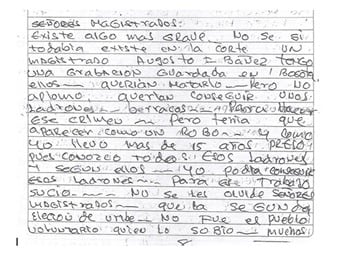 SEÑORES MAGISTRADOS:
Existe algo mas grave - No se si
todabia existe en la corte UN
magistrado Augosto I. Bánez tengo
una grabacion Guardada en
ellos - querian matarlo - Pero NO
querian conseguir unos
ladrones - berracos - Para
ESE CRIMEN - Pero tenia que
aparecer como un RoBo - y como
yo llevo mas de 15 años PRESO
pues conozco todos Esos ladrones
y segun ellos - yo podia conseguir
Esos ladrones - Para ese trabajo
sucio - NO se les olvide SEÑORES
magistrados - que la SEGUNDA
elecion de uribe - NO FUE el pueblo
voluntario quien lo SOBIO - Muchos